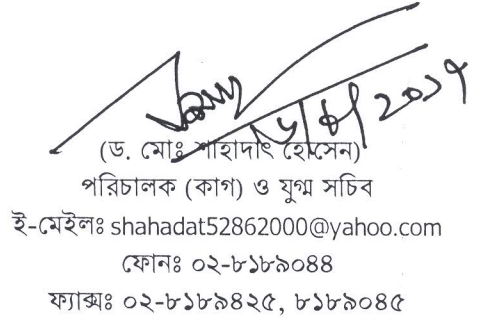 (ড. মোঃ শাহাদাৎ হোসেন)
পরিচালক (কাগ) ও যুগ্ম সচিব
ই-মেইলঃ shahadat52862000@yahoo.com
ফোনঃ ০২-৮১৮৯০৪৪
ফ্যাক্সঃ ০২-৮১৮৯৪২৫, ৮১৮৯০৪৫